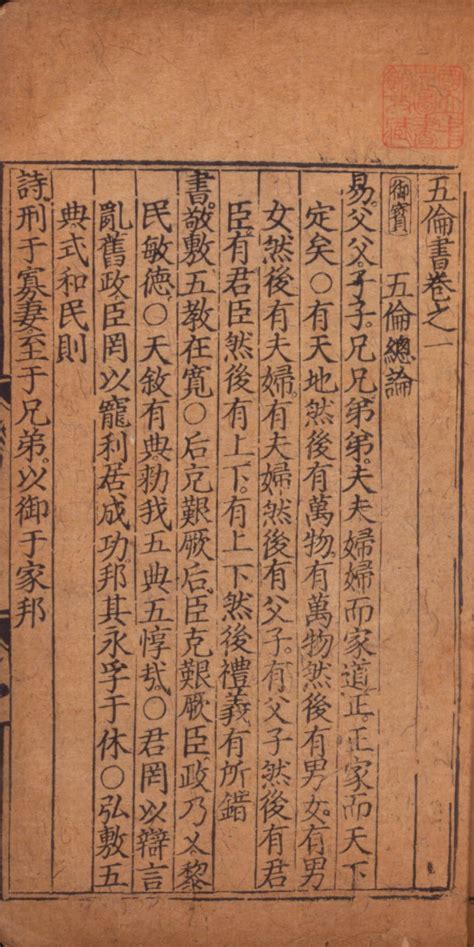 五倫書卷之一
御寶 五倫總論
易。父父。子子。兄兄。弟弟。夫夫。婦婦。而家道正。正家而天下
定矣。○有天地然後有萬物。有萬物然後有男女。有男
女然後有夫婦。有夫婦然後有父子。有父子然後有君
臣。有君臣然後有上下。有上下然後禮義有所錯
書。敬敷五教在寬○后克艱厥后。臣克艱厥臣政乃乂黎
民敏德。○天敘有典。勑我五典五惇哉。○君罔以辯言
亂舊政。臣罔以寵利居成功。邦其永孚于休○弘敷五
典式和民則
詩。刑于寡妻。至于兄弟。以御于家邦